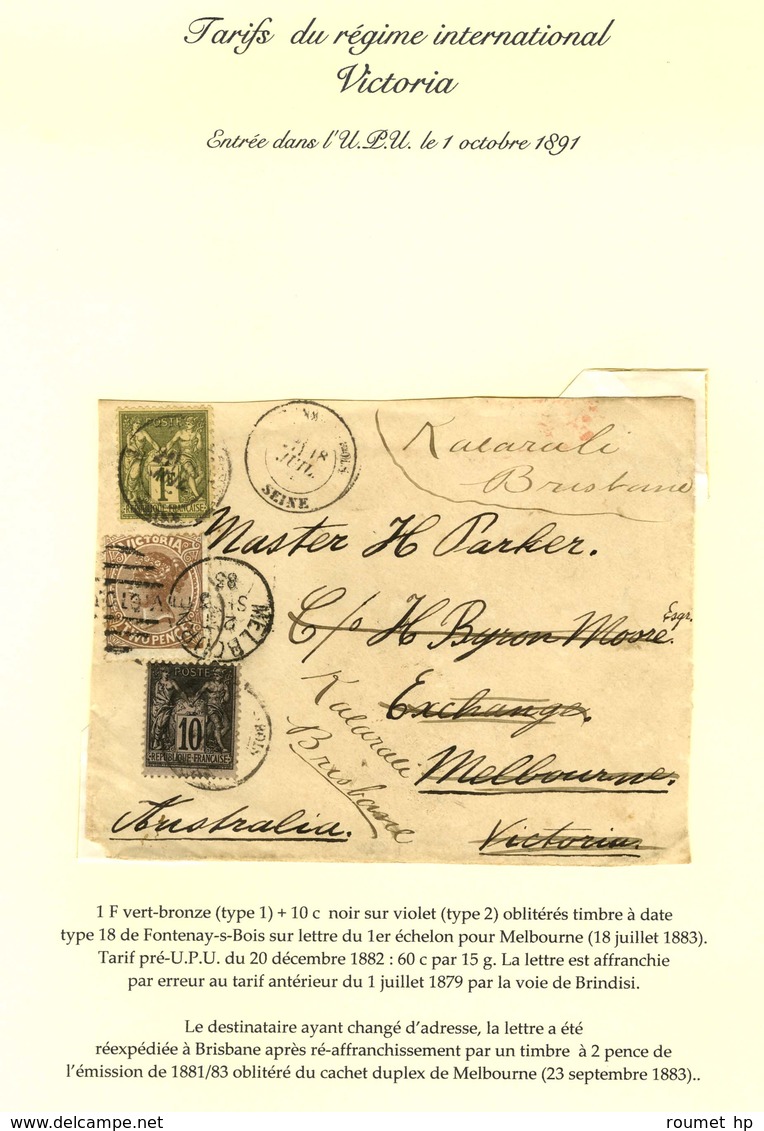 Tarifs du régime international
Victoria
Entrée dans l'U.P.U. le 1 octobre 1891
Kalarali
Brisbane
POSTE
1F
18
JUIL
SEINE
Master H Parker.
VICTORIA
TWO PENCE
MELBOURNE
83
C/o H Byron Moore Esqr.
Exchange.
Kalarali
Brisbane
POSTE
10
REPUBLIQUE FRANÇAISE
Melbourne.
Australia.
Victoria.
1 F vert-bronze (type 1) + 10 c noir sur violet (type 2) oblitérés timbre à date
type 18 de Fontenay-s-Bois sur lettre du 1er échelon pour Melbourne (18 juillet 1883).
Tarif pré-U.P.U. du 20 décembre 1882 : 60 c par 15 g. La lettre est affranchie
par erreur au tarif antérieur du 1 juillet 1879 par la voie de Brindisi.
Le destinataire ayant changé d'adresse, la lettre a été
réexpédiée à Brisbane après ré-affranchissement par un timbre à 2 pence de
l'émission de 1881/83 oblitéré du cachet duplex de Melbourne (23 septembre 1883)..
roumet hp